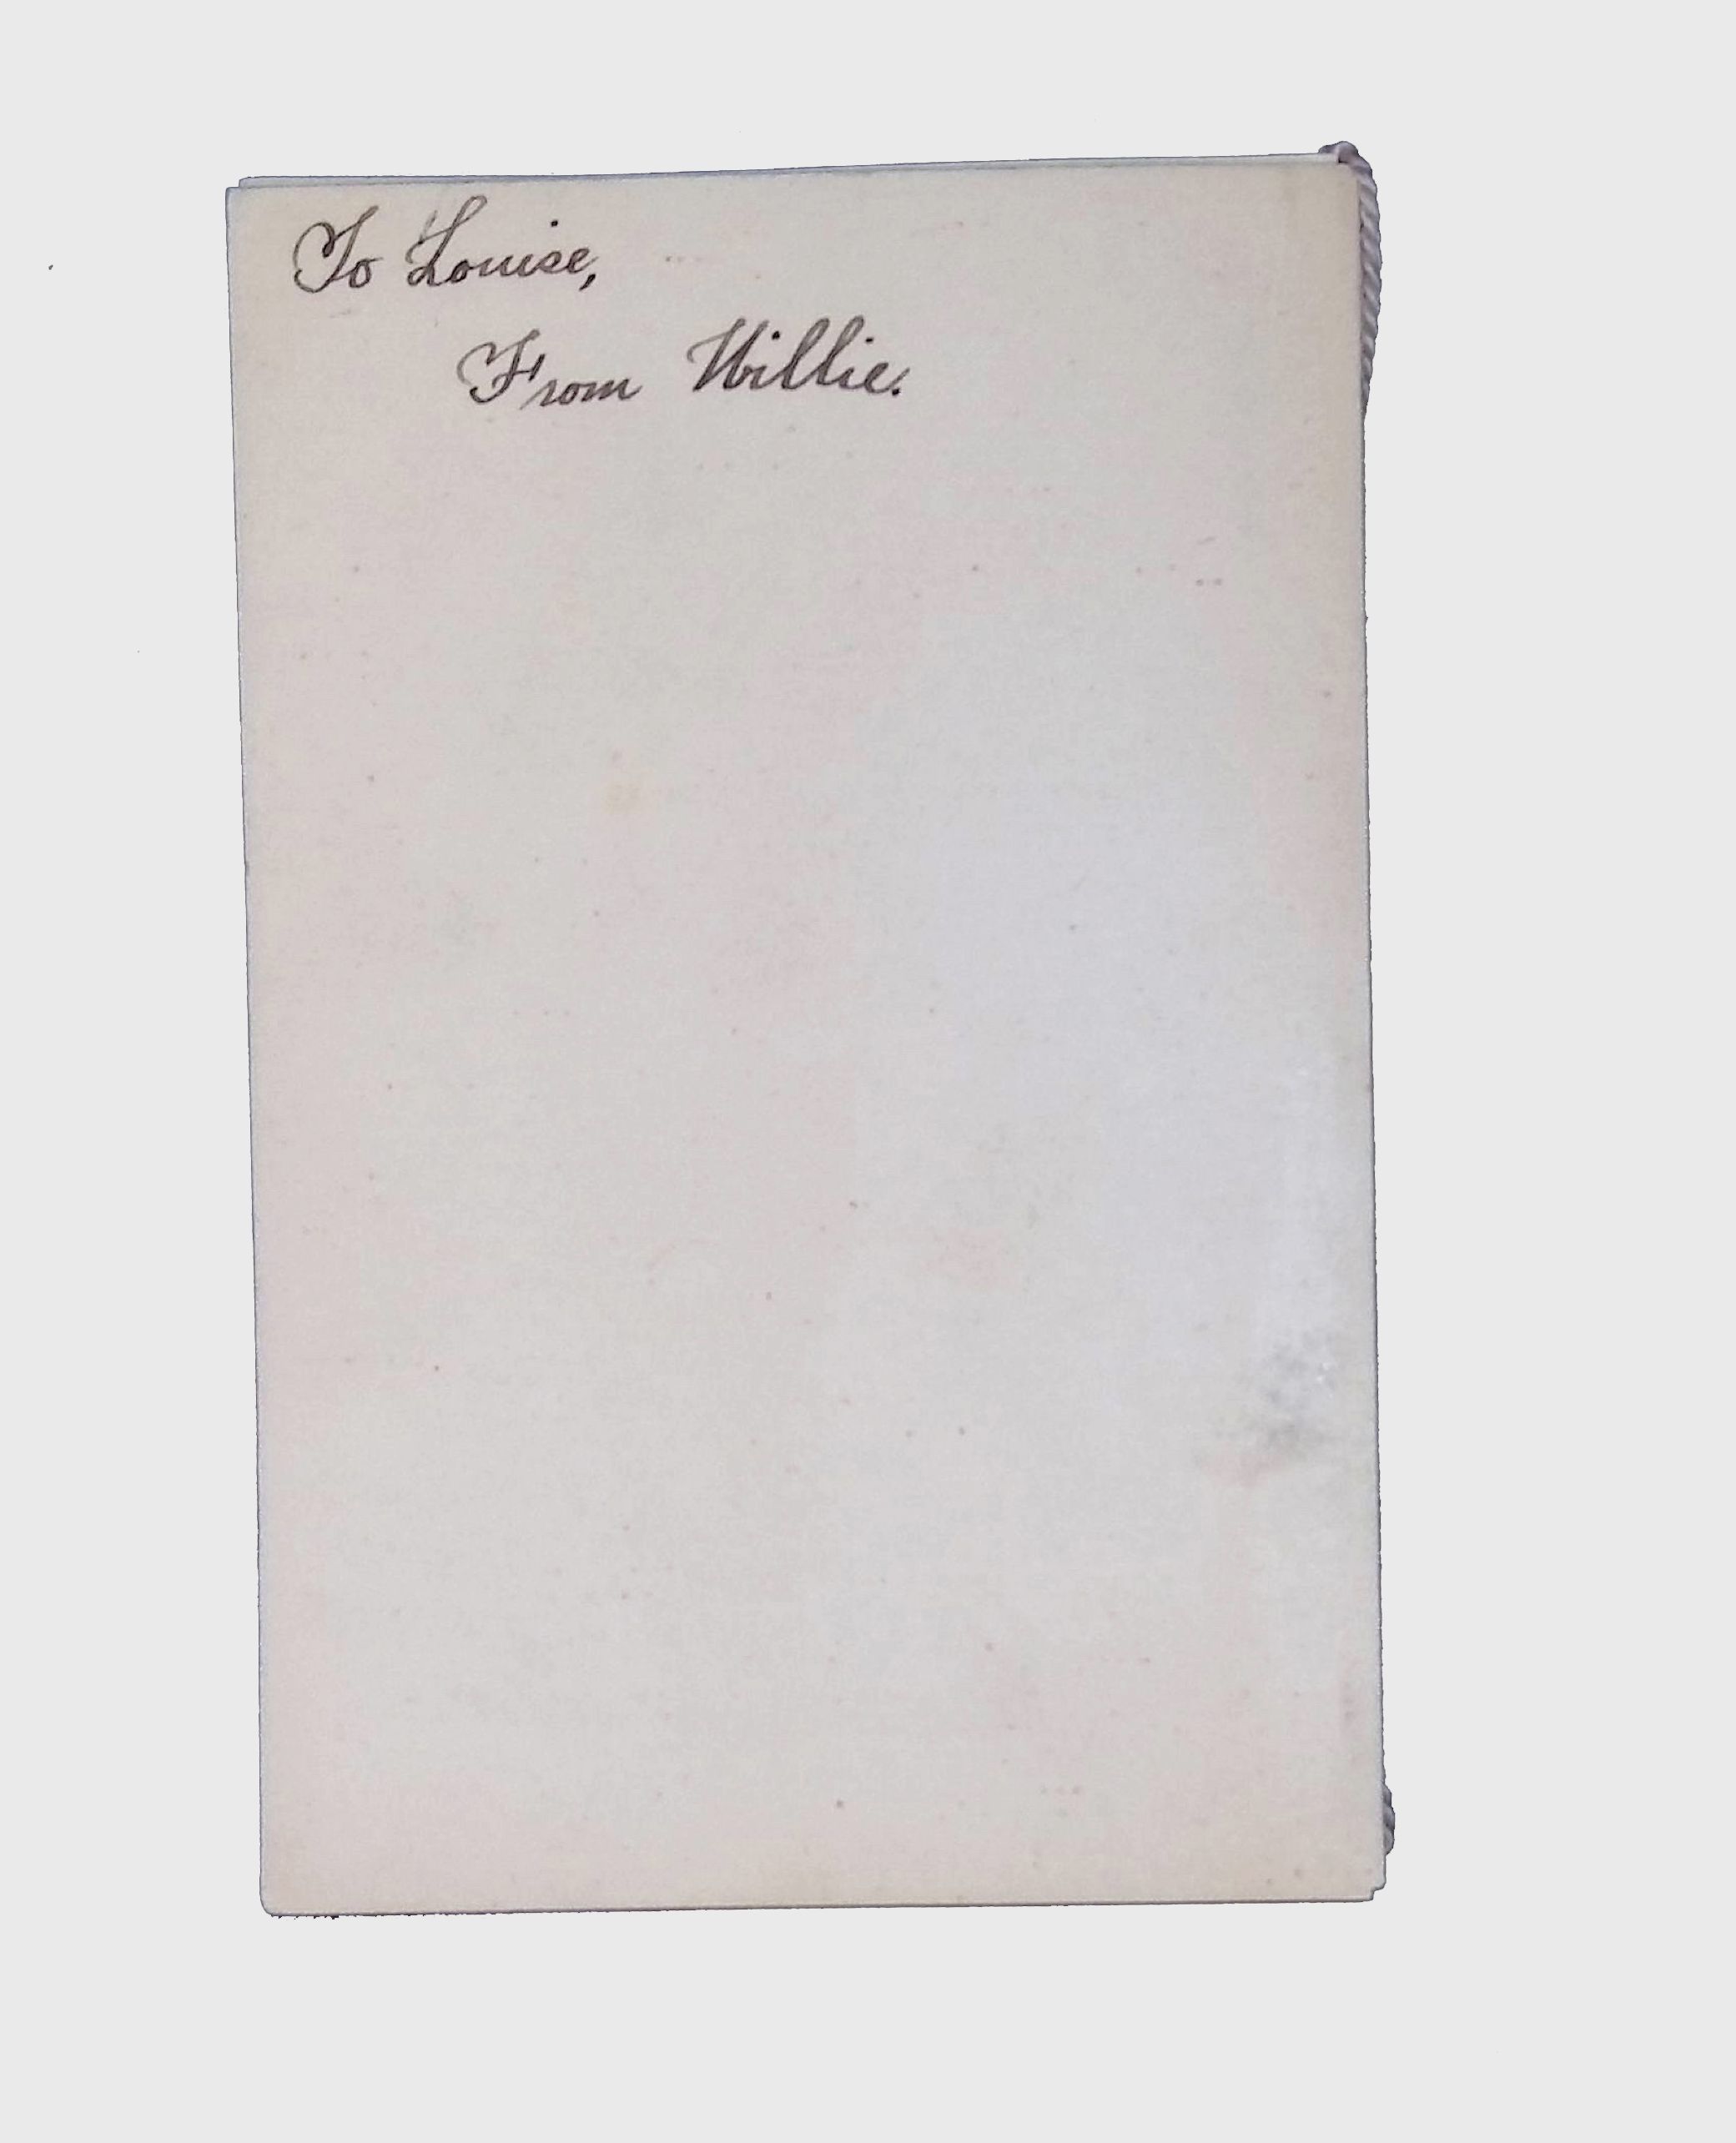 To Louise,
From Willie.